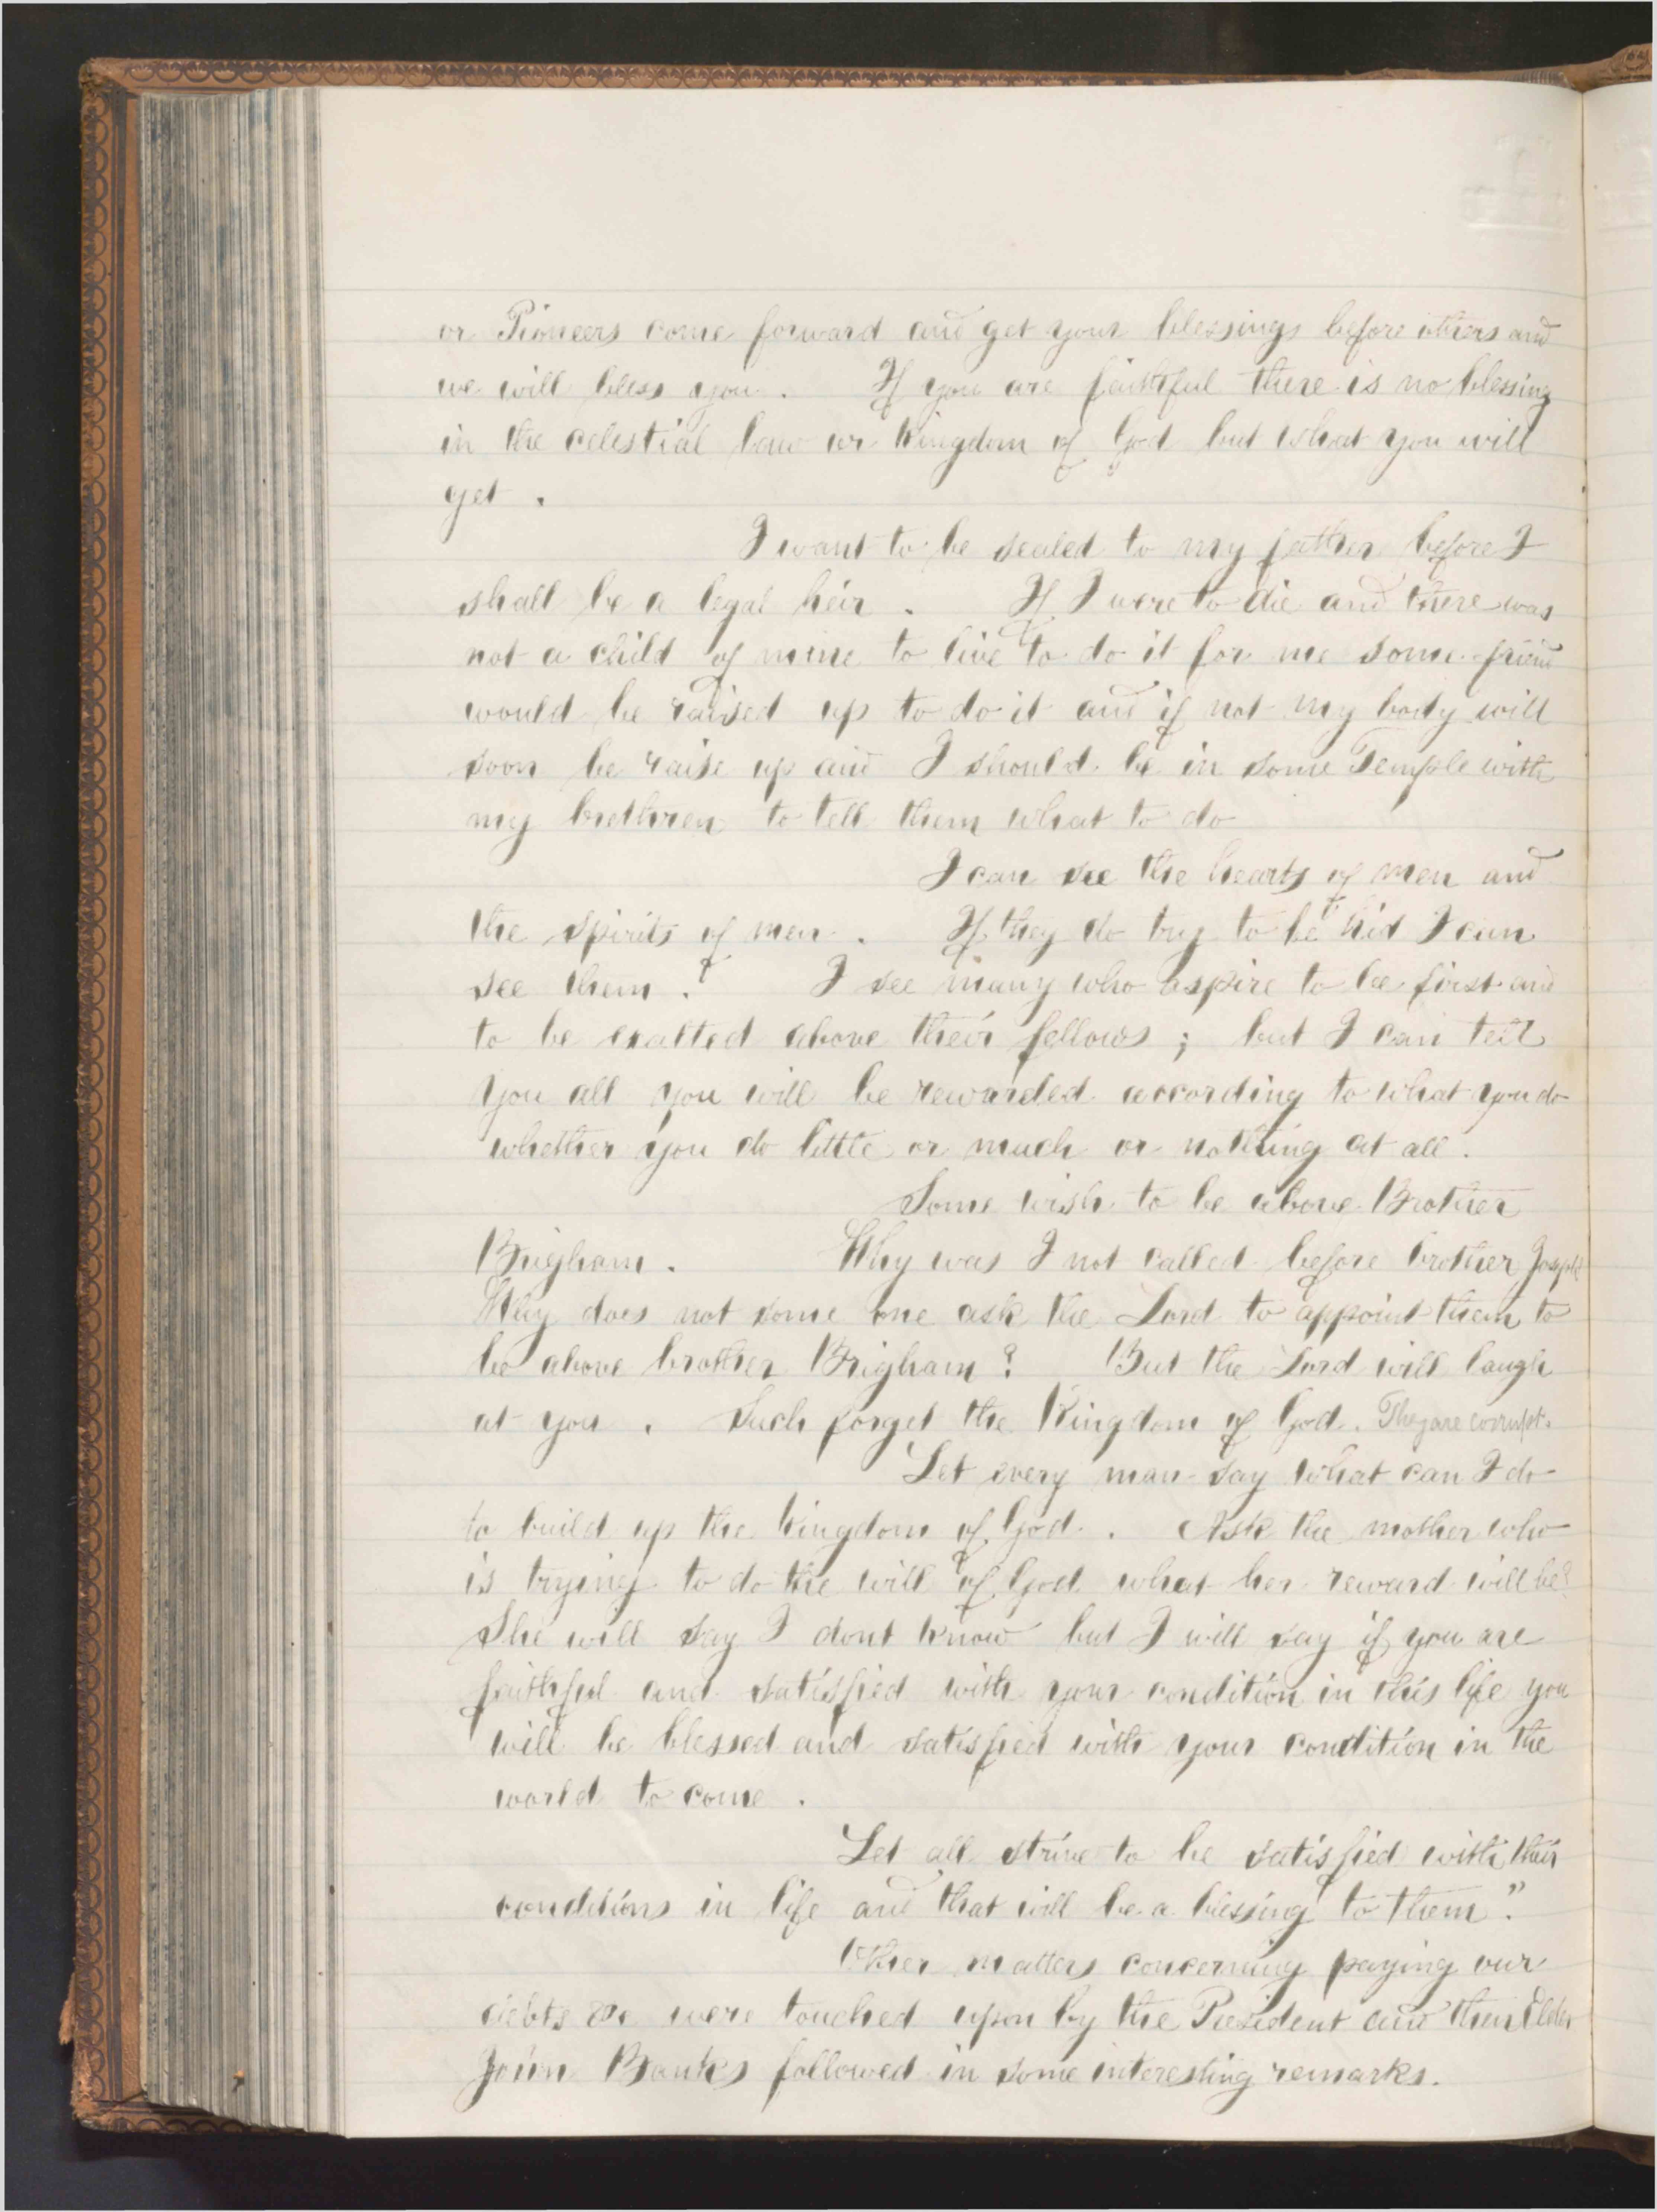 or Pioneers come forward and get your blessings before others and
we will bless you. If you are faithful there is no blessing
in the celestial law or kingdom of God but what you will
get.
I want to be sealed to my father before I
shall be a legal heir. If I were to die and there was
not a child of mine to live to do it for me some friend
would be raised up to do it and if not my body will
soon be raise up and I should be in some Temple with
my brethren to tell them what to do
I can see the hearts of men and
the spirits of men. If they do try to be hid I can
see them. I see many who aspire to be first and
to be exalted above their fellows; but I can tell
you all you will be rewarded according to what you do
whether you do little or much or nothing at all.
Some wish to be above Brother
Brigham. Why was I not called before brother Joseph
Why does not some one ask the Lord to appoint them to
be above brother Brigham? But the Lord will laugh
at you. Such forget the Kingdom of God. They are corrupt.
Let every man say what can I do
to build up the kingdom of God. Ask the mother who
is trying to do the will of God what her reward will be?
She will say I dont know but I will say if you are
faithful and satisfied with your condition in this life you
will be blessed and satisfied with your condition in the
world to come.
Let all strive to be satisfied with their
conditions in life and that will be a blessing to them."
Other matters concerning paying our
debts &c were touched upon by the President and then Elder
John Banks followed in some interesting remarks.